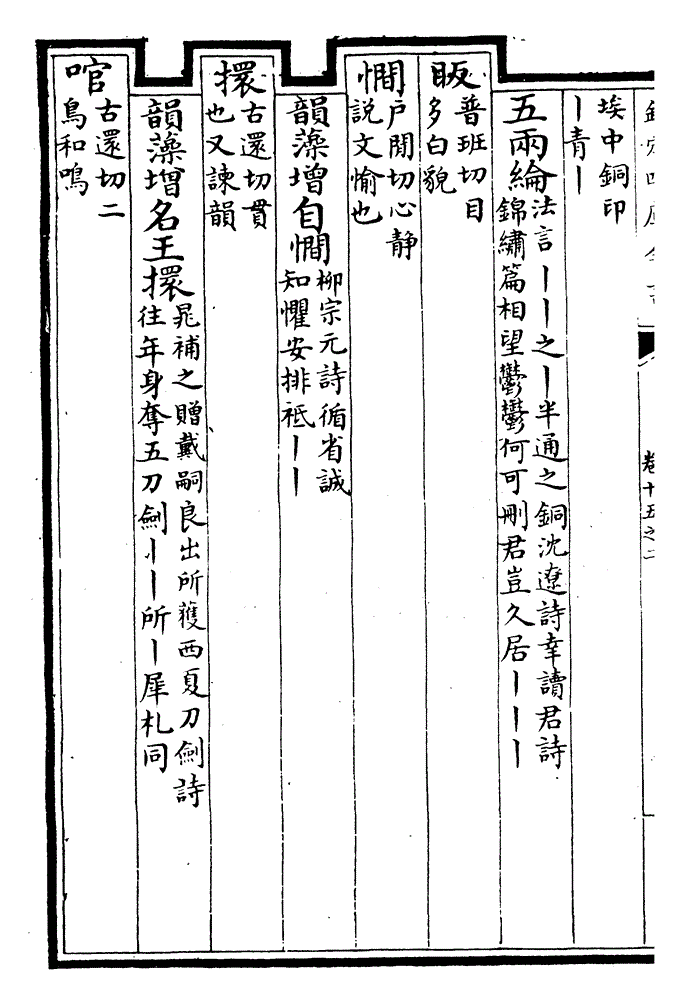 欽定四庫全書
卷十五之二
埃中銅印
丨青丨
五兩綸
法言丨丨之丨半通之銅沈遼詩幸讀君詩
錦繡篇相望鬱鬱何可刪君豈久居丨丨丨
眅
普班切目
多白貌
憪
户閒切心静
説文愉也
韻藻增自憪
柳宗元詩循省誠
知懼安排祗丨丨
擐
古還切貫
也又諫韻
韻藻增名王擐
晁補之贈戴嗣良出所獲西夏刀劍詩
往年身奪五刀劍丨丨所丨犀札同
㖘
古還切二
鳥和鳴